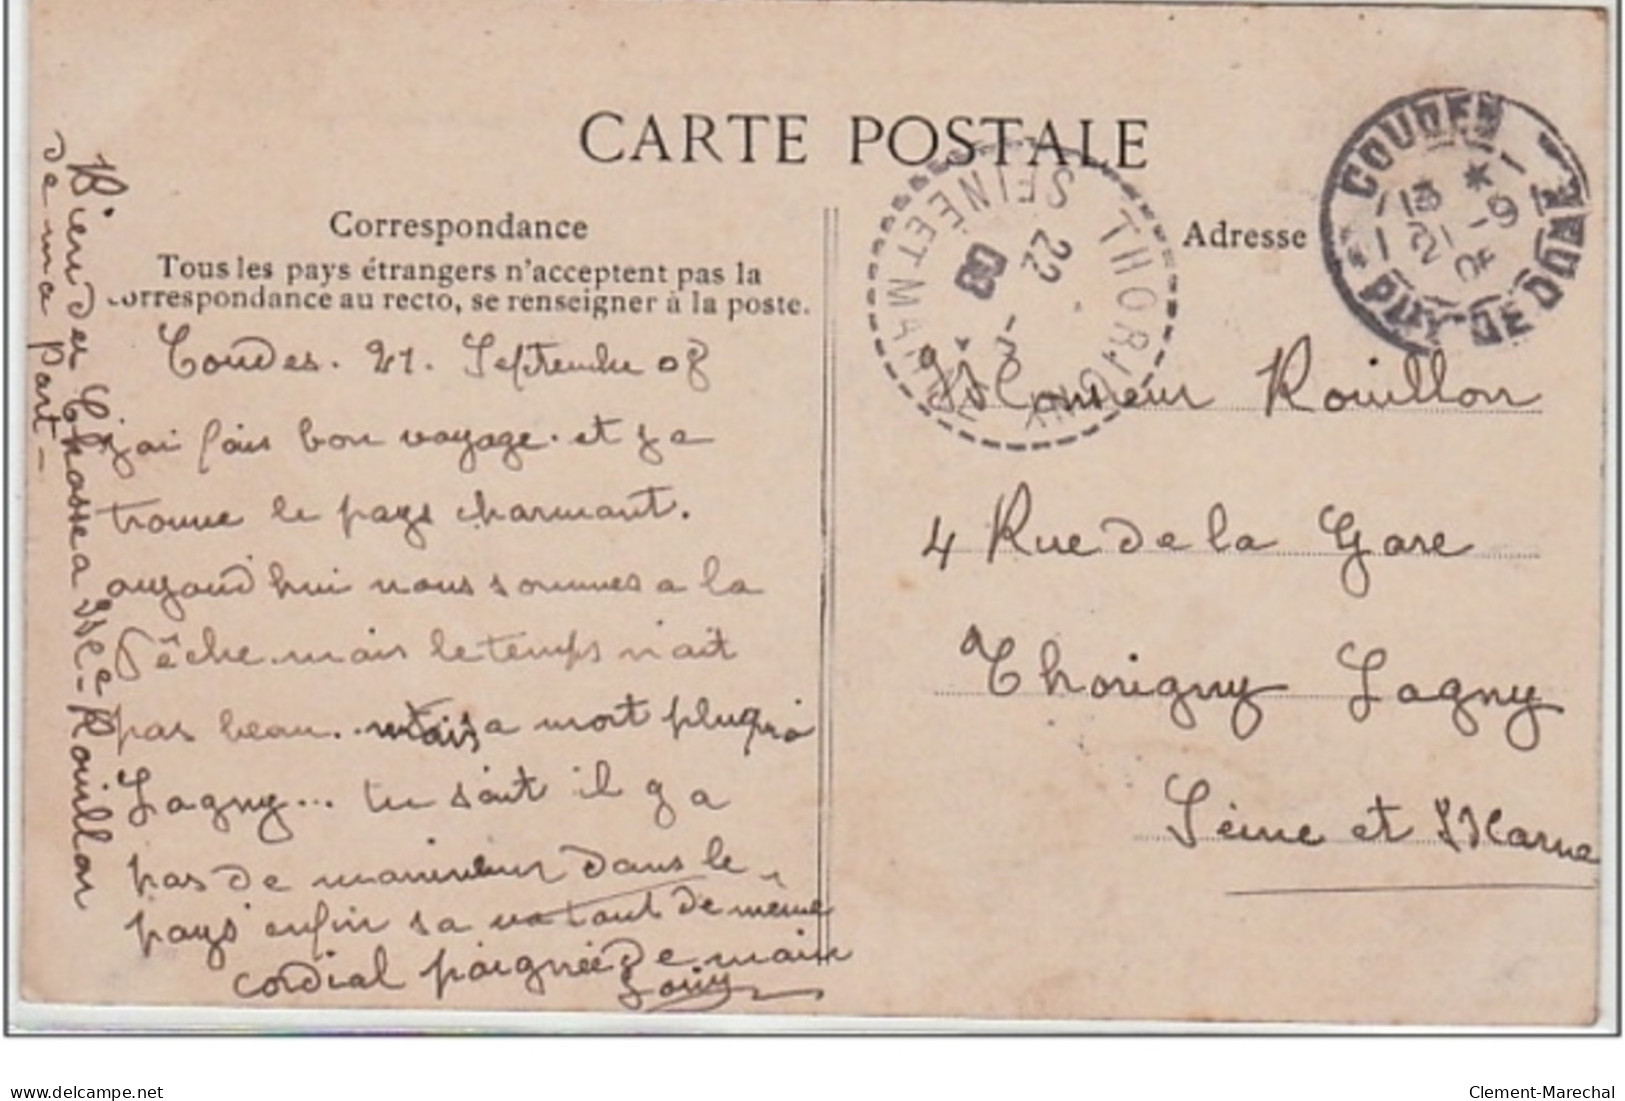 CARTE POSTALE
Correspondance
Tous les pays étrangers n'acceptent pas la
correspondance au recto, se renseigner à la poste.
Coudes. 21. Septembre 08
j'ai fais bon voyage. et j'a
trouve le pays charmant.
aujourd hui nous sommes a la
Pêche. mais le temps n'ait
pas beau.. mais a mort
Lagny... tu sait il y a
pas de marinieur dans le
pays enfin sa va tout de même
cordial poignée de main
Louis
Bien des Chosses a Me Rouillon
de ma part -
Adresse
Monsieur Rouillon
4 Rue de la Gare
Thorigny Lagny
Seine et Marne
COUDES
PUY-DE-DOME
13 *
21 -9
THORIGNY
SEINE ET MARNE
22
08
delcampe.net
Clement-Marechal